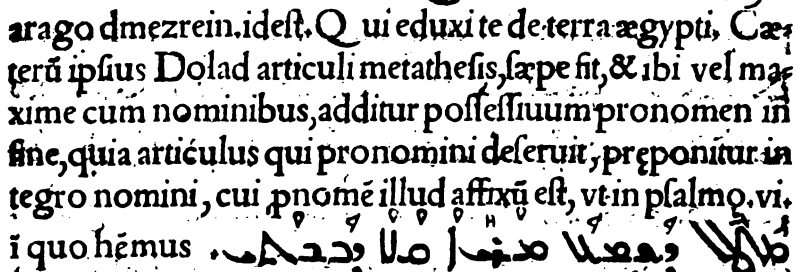 arago dmezrein.ideſt. Qui eduxi te de terra ægypti. Cæ-
terũ ipſius Dolad articuli metatheſis,ſæpe fit,& ibi vel ma-
xime cum nominibus,additur poſſeſſiuum pronomen in
fine,quia articulus qui pronomini deſeruit,pręponitur in
tegro nomini, cui ꝓnomẽ illud affixũ eſt, vt in pſalmo.vi.
ĩ quo hẽmus